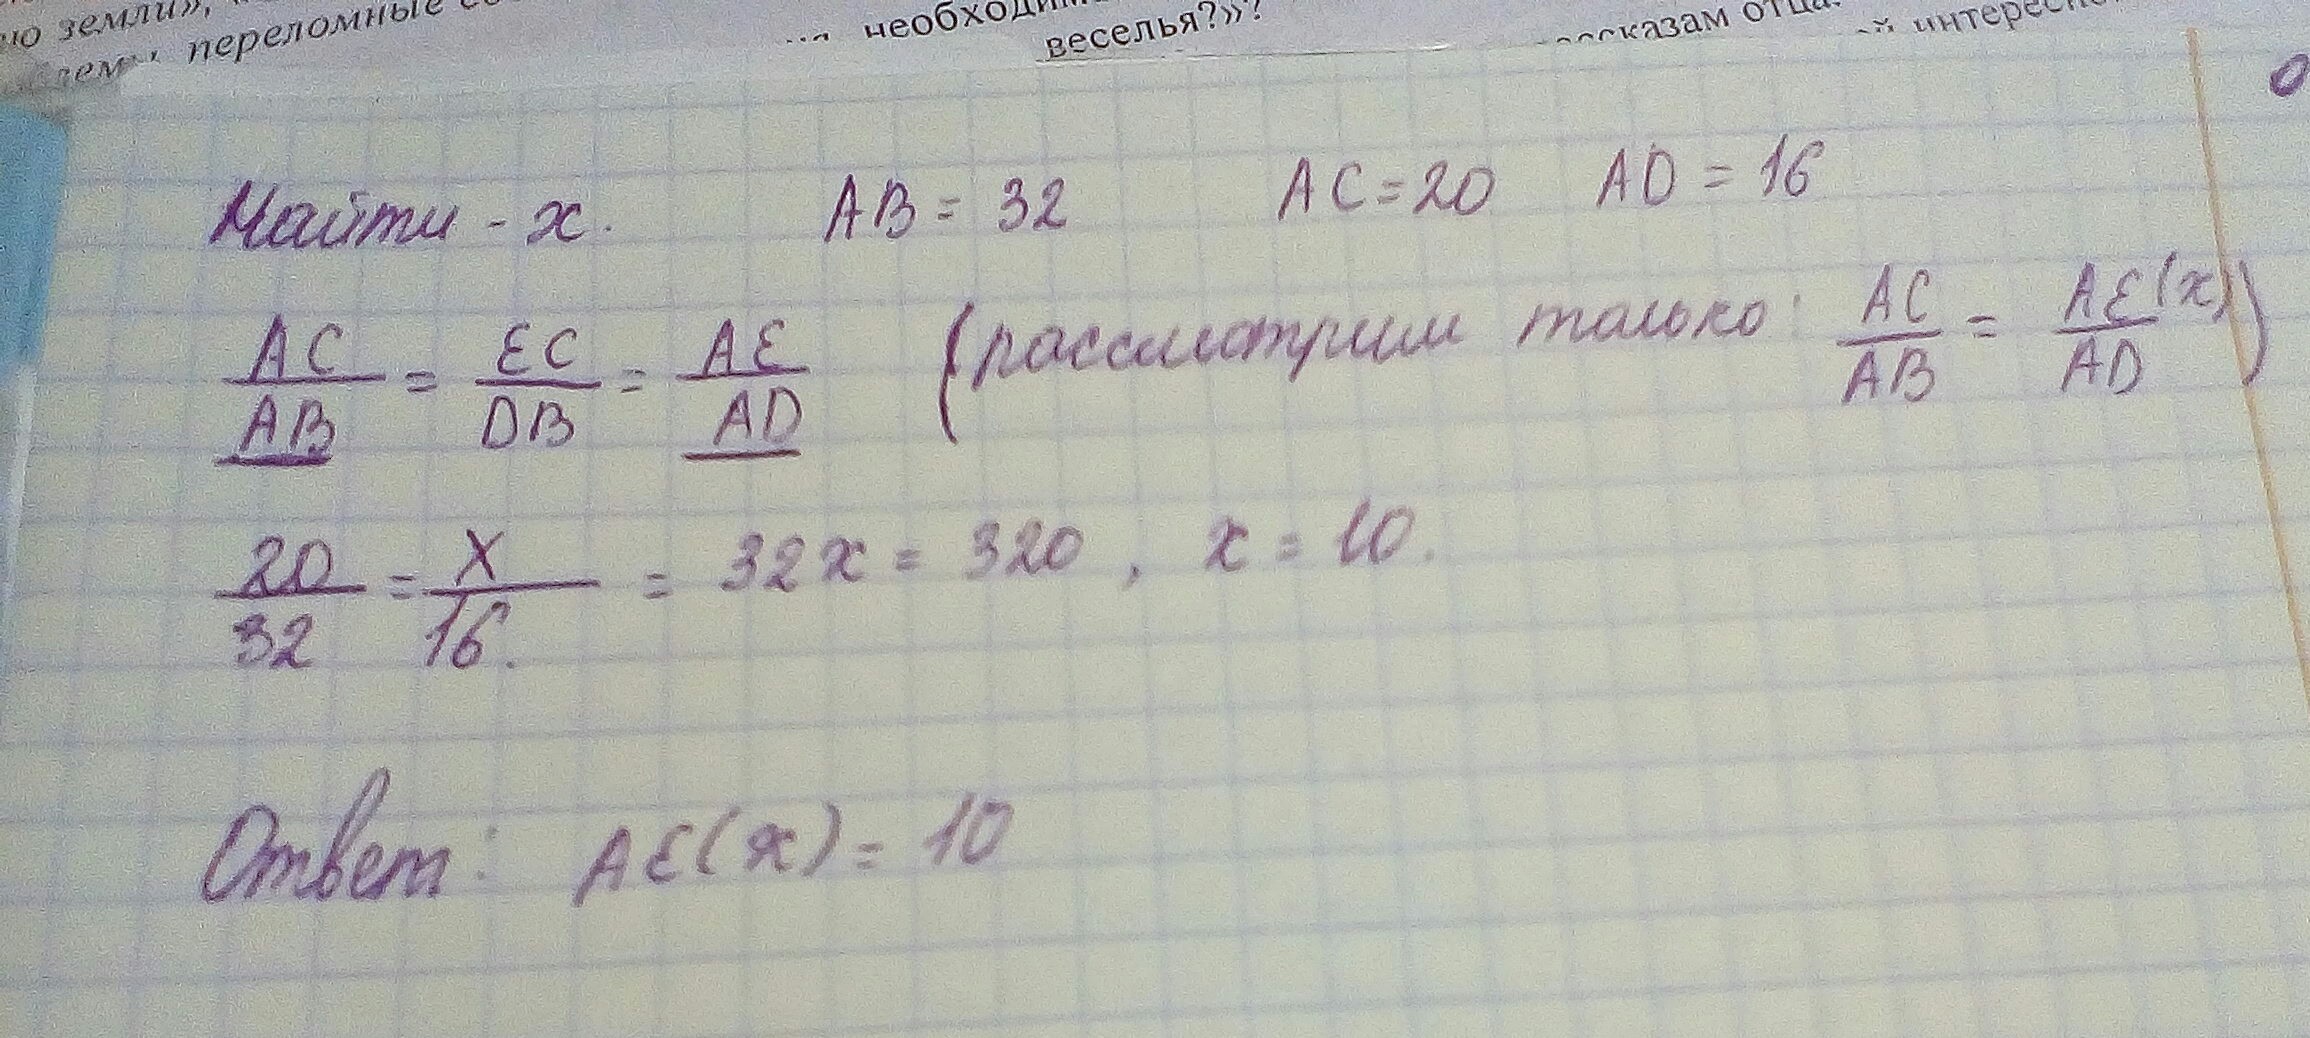 ю земли»,
переломные
необходим
веселья?»?
рассказам отца.
й интересн
Найти - x. AB = 32 AC = 20 AD = 16
AC/AB = EC/DB = AE/AD (рассмотрим только: AC/AB = AE(x)/AD)
20/32 = x/16. = 32x = 320, x = 10.
Ответ: AE(x) = 10